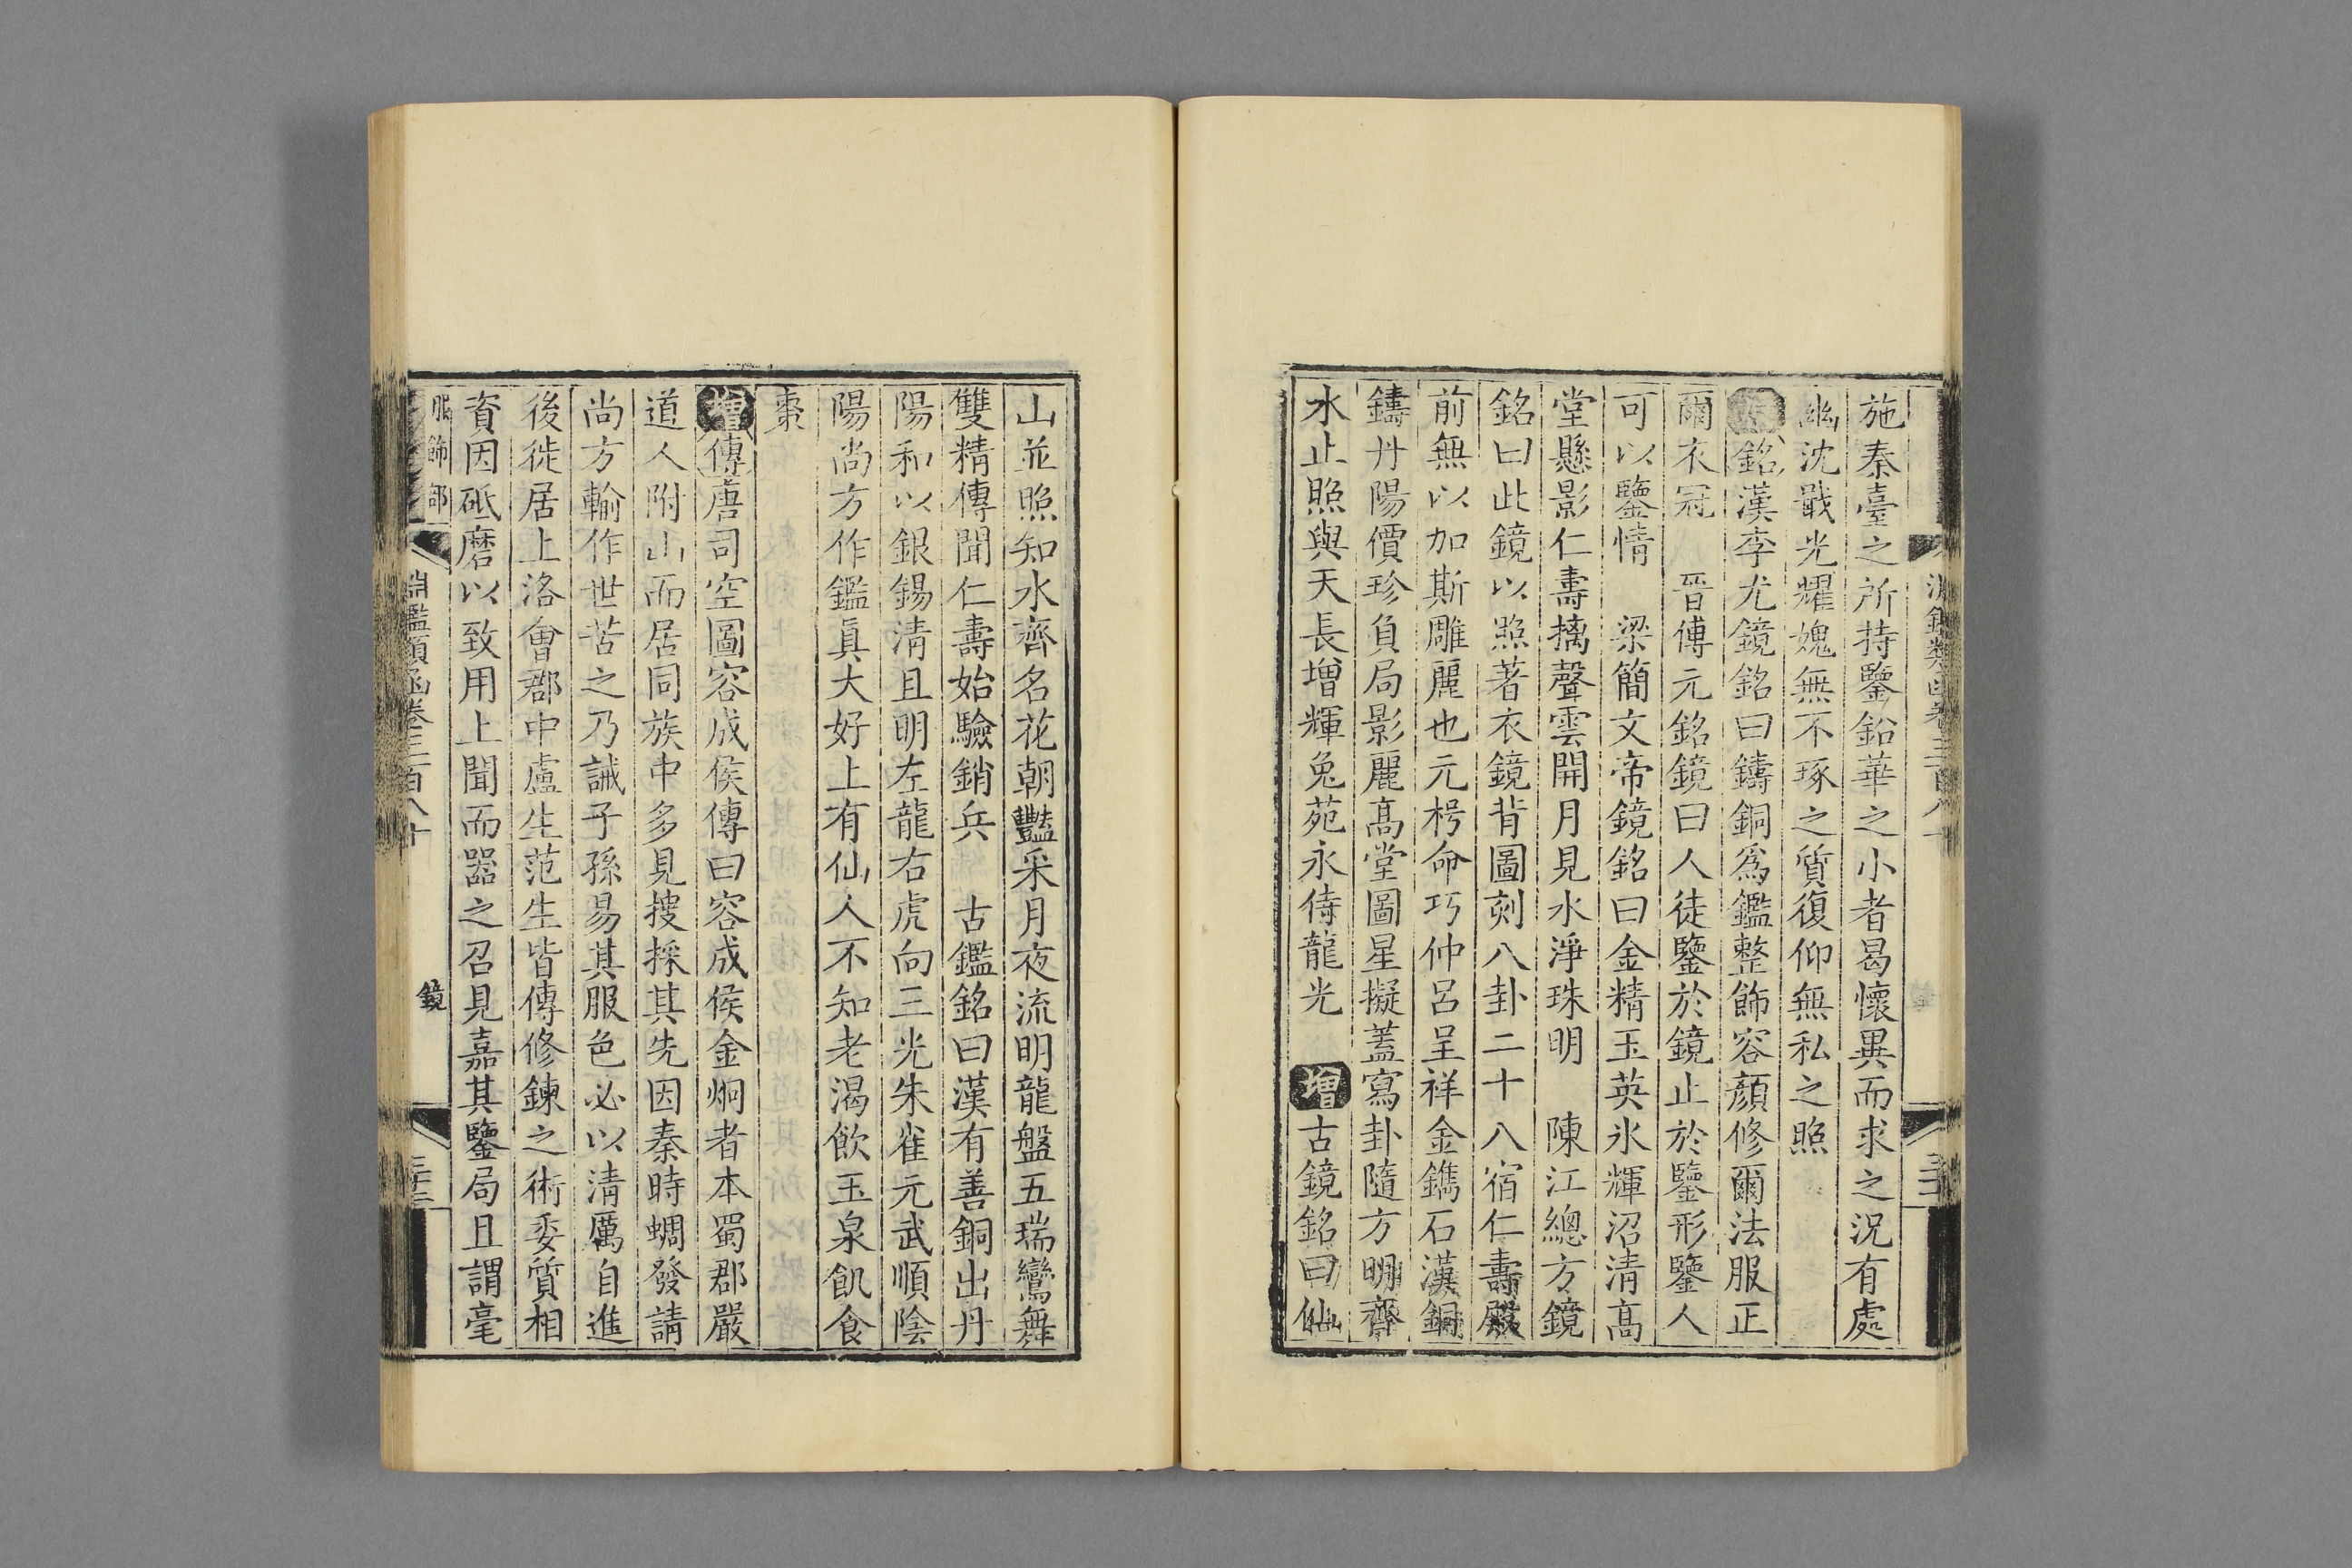 施秦臺之所持鑒鉛華之小者曷懷異而求之況有處
幽沈戢光耀媿無不琢之質復仰無私之照
銘漢李尤鏡銘曰鑄銅爲鑑整飾容顔修爾法服正
爾衣冠 晉傅元銘鏡曰人徒鑒於鏡止於鑒形鑒人
可以鑒情 梁簡文帝鏡銘曰金精玉英氷輝沼清高
堂懸影仁壽摛聲雲開月見水淨珠明 陳江總方鏡
銘曰此鏡以照著衣鏡背圖刻八卦二十八宿仁壽殿
前無以加斯雕麗也元枵命巧仲呂呈祥金鐫石漢銅
鑄丹陽價珍負局影麗高堂圖星擬蓋寫卦隨方明齊
水止照與天長增輝兔苑永侍龍光 增古鏡銘曰仙
山並照知水齊名花朝豔采月夜流明龍盤五瑞鸞舞
雙精傳聞仁壽始驗銷兵 古鑑銘曰漢有善銅出丹
陽和以銀錫清且明左龍右虎向三光朱雀元武順陰
陽尚方作鑑眞大好上有仙人不知老渴飲玉泉飢食
棗
增傳唐司空圖容成侯傳曰容成侯金炯者本蜀郡嚴
道人附山而居同族中多見搜採其先因秦時蜩發請
尚方輸作世苦之乃誡子孫易其服色必以清厲自進
後徙居上洛會郡中盧生范生皆傳修鍊之術委質相
資因砥磨以致用上聞而器之召見嘉其鑒局且謂毫
服飾部 淵鑑類函卷三百八十 鏡